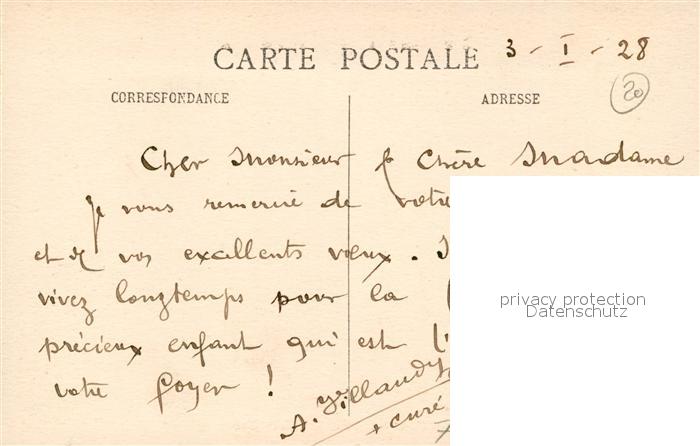 CARTE POSTALE 3 - I - 28
CORRESPONDANCE ADRESSE
20
Cher Monsieur & Chère Madame
Je vous remercie de votre
et de vos excellents vœux.
vivez longtemps pour la
précieux enfant qui est l'
votre foyer !
A. Villaudy
+ curé
privacy protection
Datenschutz